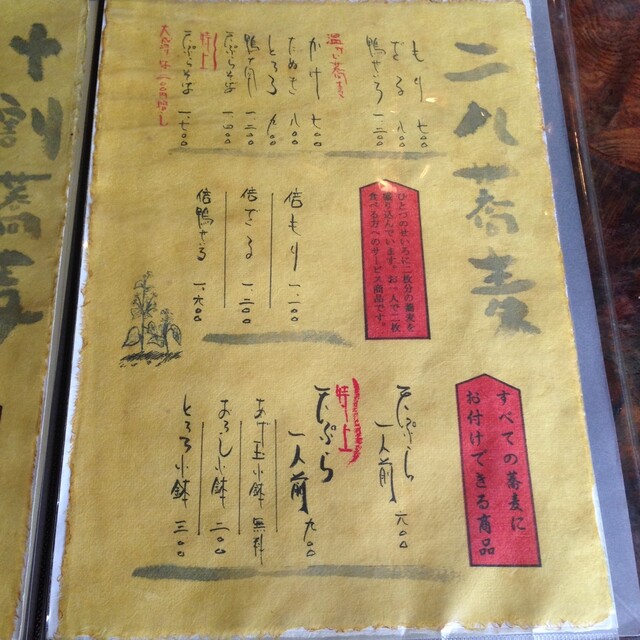 二八蕎麦
もり 七〇〇
ざる 八〇〇
鴨せいろ 一、三〇〇
温かい蕎麦
かけ 七〇〇
たぬき 八〇〇
とろろ 九〇〇
鴨南 一、三〇〇
天ぷらそば 一、四〇〇
特上
天ぷらそば 一、七〇〇
ひとつのせいろに二枚分の蕎麦を
盛り込んでいます。お一人で二枚
食べる方へのサービス商品です。
倍もり 一、一〇〇
倍ざる 一、三〇〇
倍鴨せいろ 一、六〇〇
すべての蕎麦に
お付けできる商品
天ぷら
一人前 六〇〇
特上
天ぷら
一人前 九〇〇
あげ玉小鉢 無料
おろし小鉢 二〇〇
とろろ小鉢 三〇〇
十割蕎麦